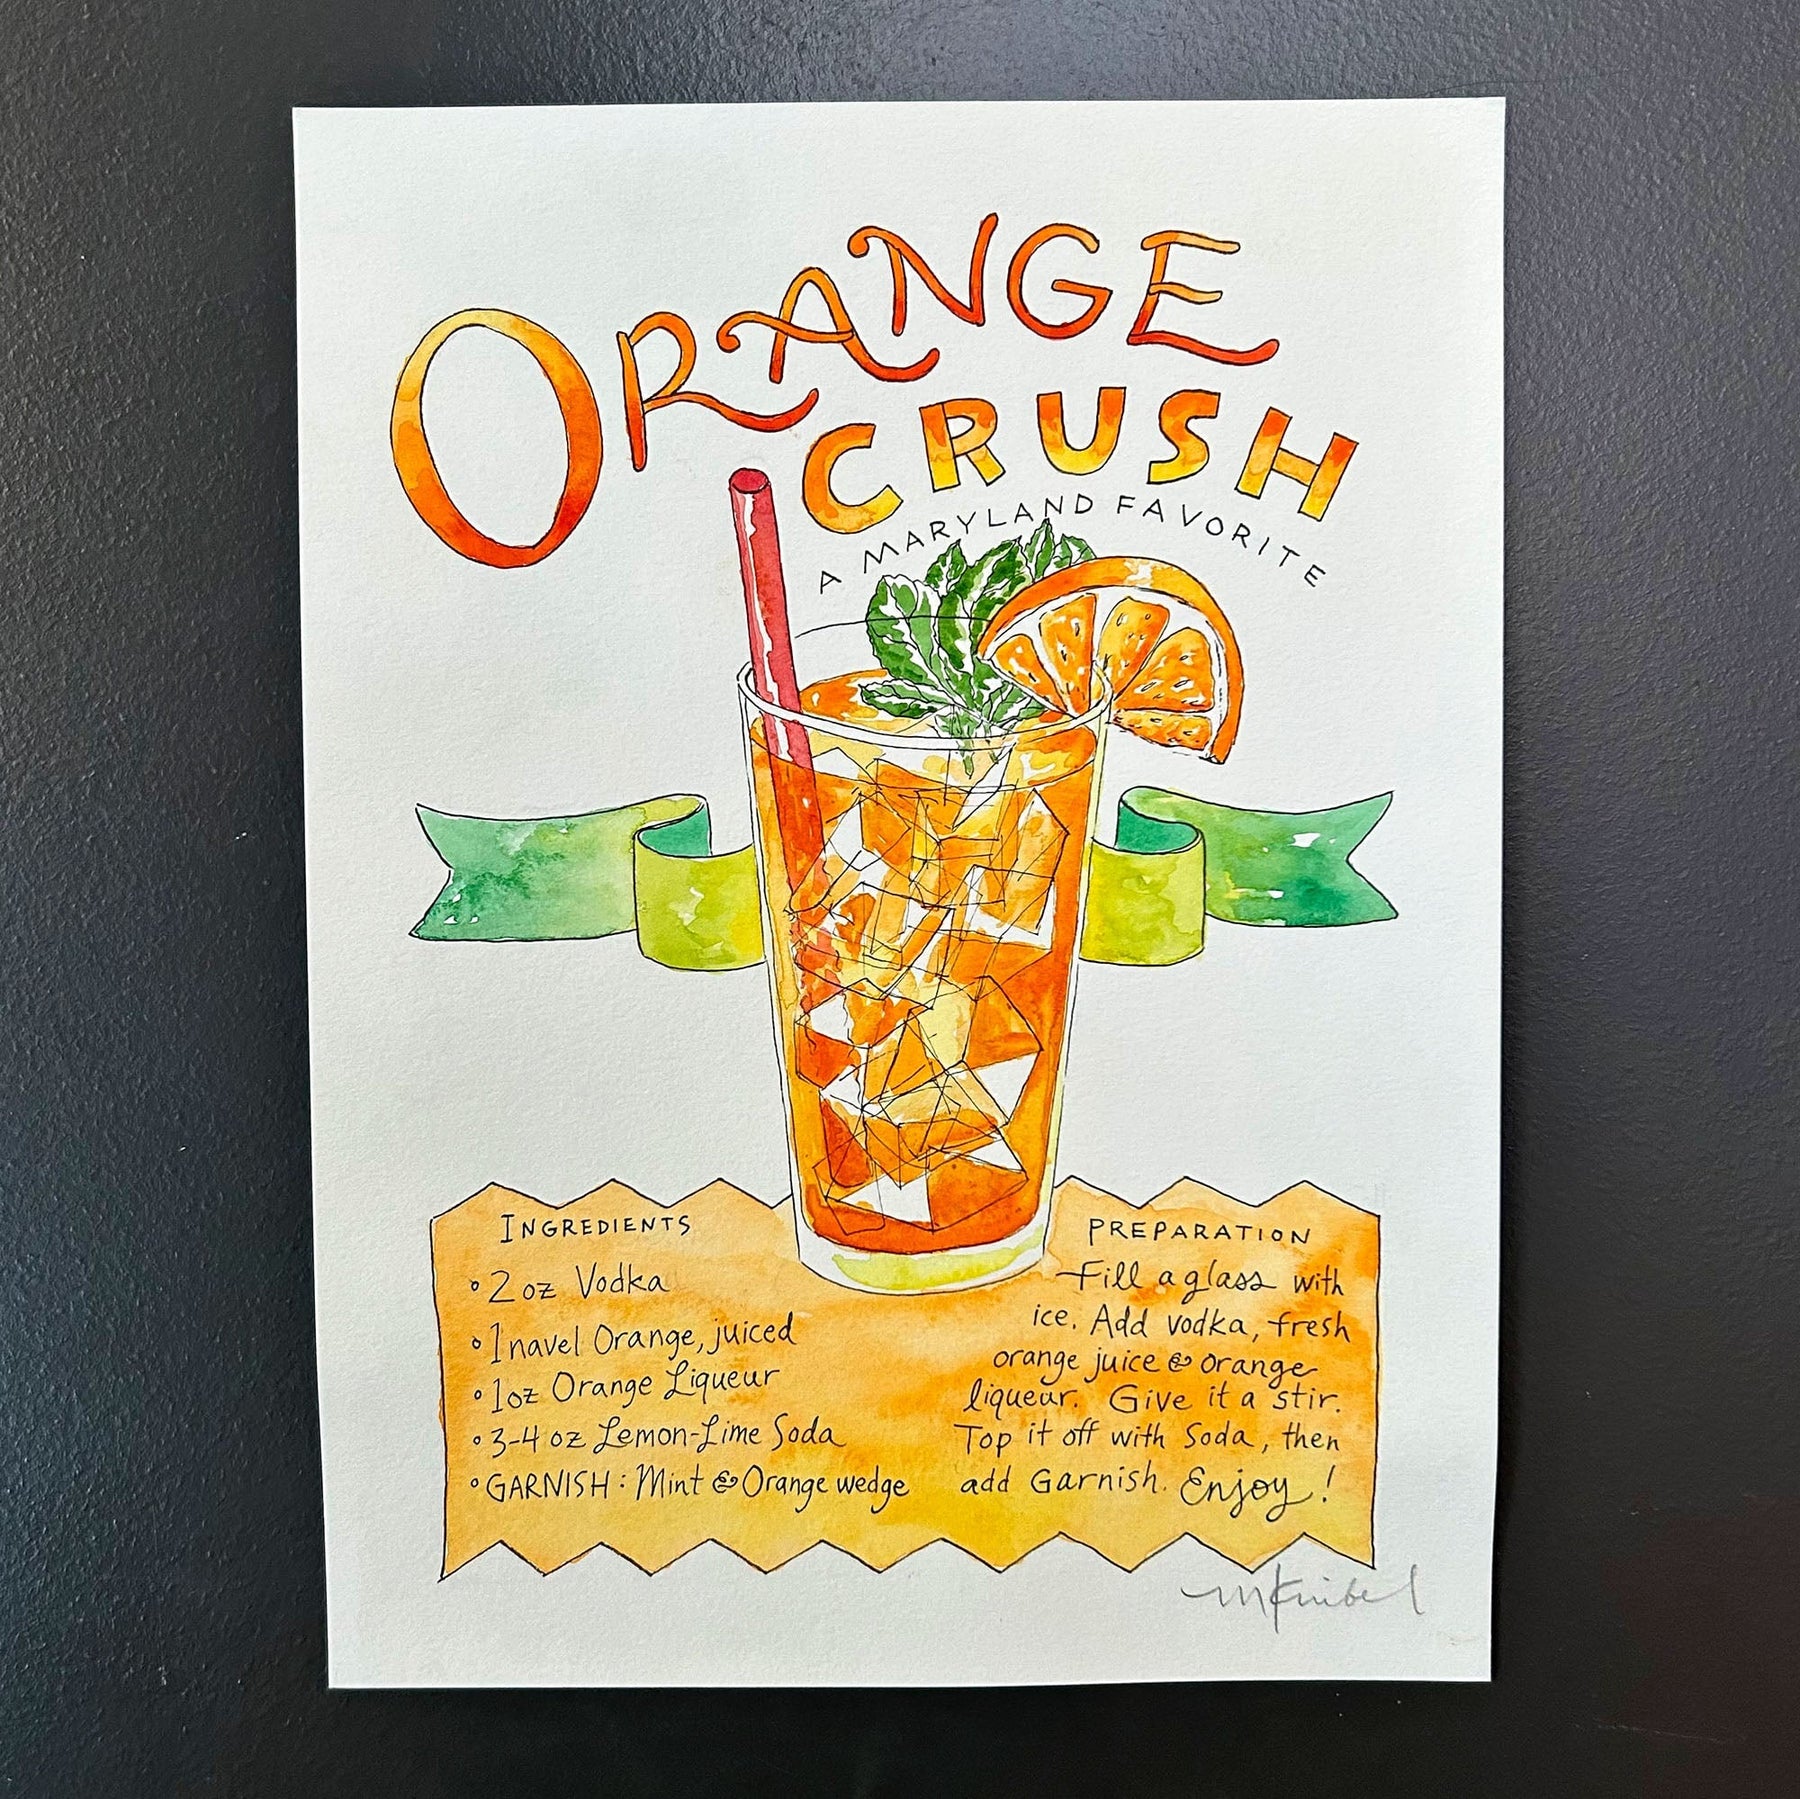 ORANGE
CRUSH
A MARYLAND FAVORITE
INGREDIENTS
• 2 oz Vodka
• 1 navel Orange, juiced
• 1 oz Orange Liqueur
• 3-4 oz Lemon-Lime Soda
• GARNISH: Mint & Orange wedge
PREPARATION
Fill a glass with
ice. Add vodka, fresh
orange juice & orange
liqueur. Give it a stir.
Top it off with Soda, then
add Garnish. Enjoy!
MKnibel